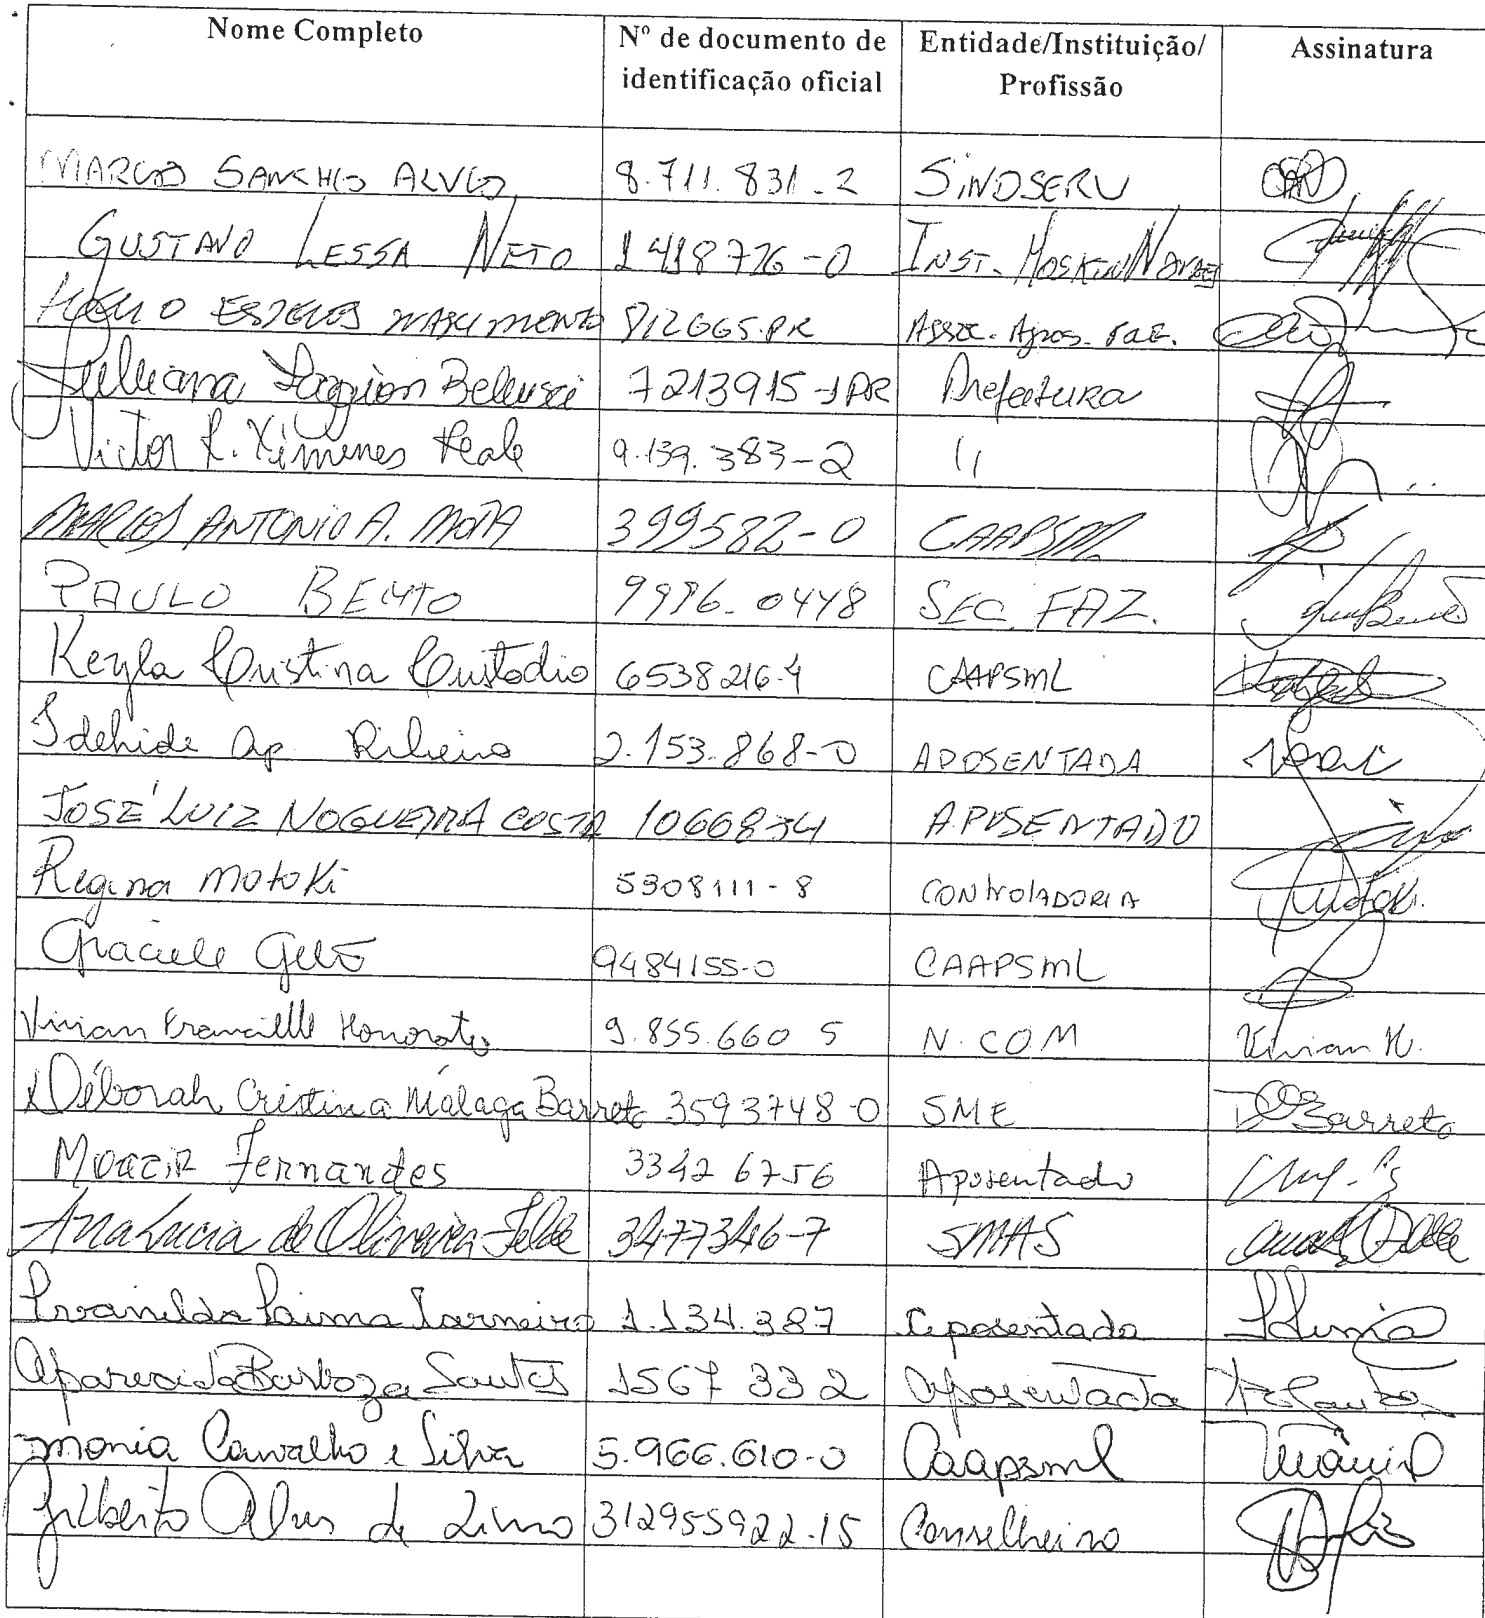 Nome Completo Nº de documento de identificação oficial Entidade/Instituição/ Profissão Assinatura
MARCOS SANCHES ALVES 8.711.831-2 SINDSERV
GUSTAVO LESSA NETO 1418776-0 INST.
NASCIMENTO 812665-PR ASSOC. APOS.
Juliana Bellusci 7213915-1PR Prefeitura
Victor R. Ximenes Leale 9.139.383-2 "
MARCOS ANTONIO A. MOTA 399582-0 CAAPSML
PAULO BENTO SEC. FAZ.
Keyla Cristina Custodio 6538216-4 CAAPSML
Idehide Ap. Ribeiro 2.153.868-0 APOSENTADA
JOSÉ LUIZ NOGUEIRA COSTA 1066834 APOSENTADO
Regina Motoki 5308111-8 CONTROLADORIA Motoki
Graciele 9484155-0 CAAPSML
Vivian Francielle Honorato 9.855.660 5 N.COM Vivian H.
Déborah Cristina Málaga Barreto 3593748-0 SME DCBarreto
Moacir Fernandes 3342 6756 Aposentado
Ana Lucia de Oliveira 3477346-7 SMAS
Ivanilda Carneiro 1.134.387 Aposentada
Aparecida Barboza Santos 1567 332 Aposentada
Carvalho e Silva 5.966.610-0 Caapsml
Gilberto Alves de Lima 312955922-15 Conselheiro